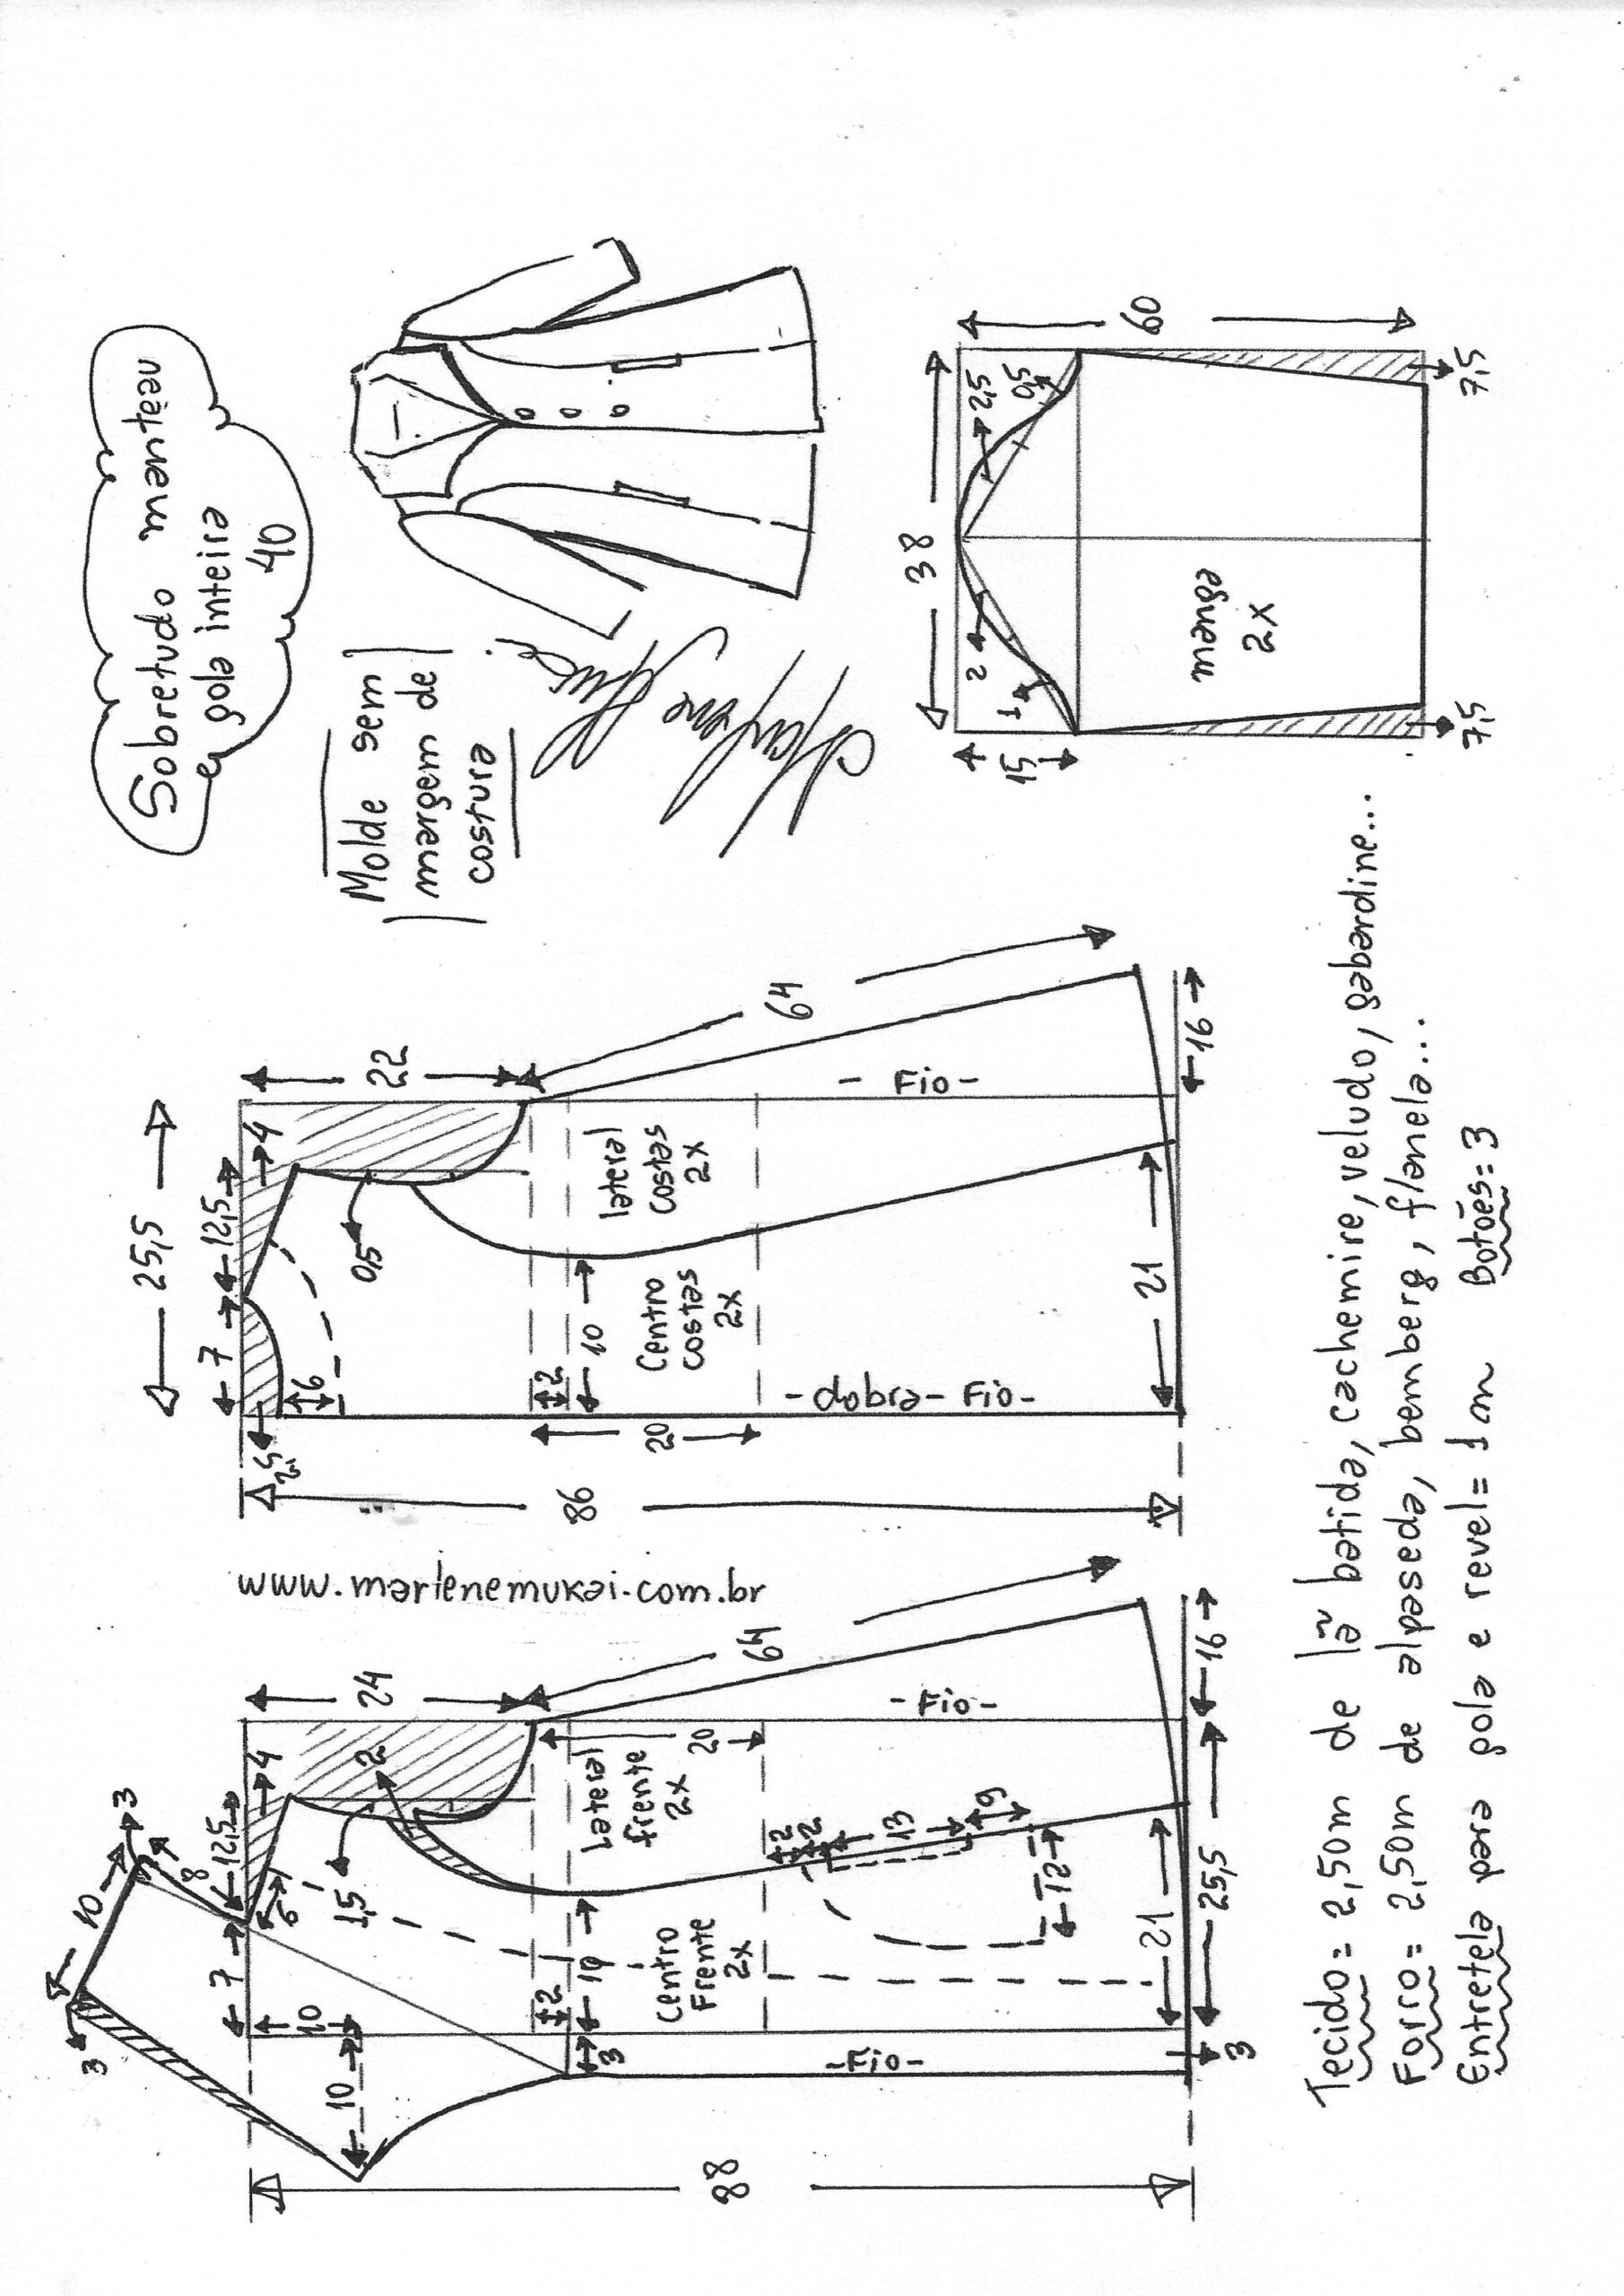 Sobretudo manteau
gola inteira
40
Molde sem
margem de
costura
www.marlenemukai.com.br
3
10
3
8
12,5
4
7
6
10
10
1,5
2
24
64
2
10
3
20
Lateral
frente
2x
Centro
Frente
2x
2
2
13
9
12
-Fio-
-Fio-
21
25,5
16
3
88
25,5
7
12,5
4
2,5
6
0,5
22
64
2
10
20
lateral
costas
2x
Centro
costas
2x
-dobra- Fio-
- Fio-
21
16
86
38
2
1
2,5
0,5
15
60
manga
2x
7,5
7,5
Tecido= 2,50m de lã batida, cachemire, veludo, gabardine...
Forro= 2,50m de alpaseda, bemberg, flanela...
Entretela para gola e revel= 1m Botões=3